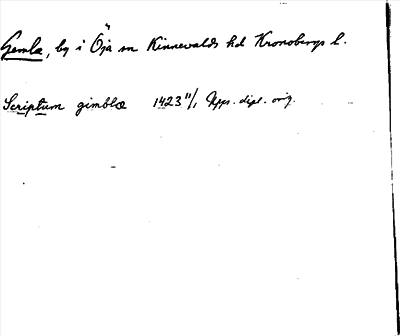 Gemla, by i Öja sn Kinnevalds hd Kronobergs l.
Scriptum gimblæ 1423 11/1 Upps. dipl. orig.